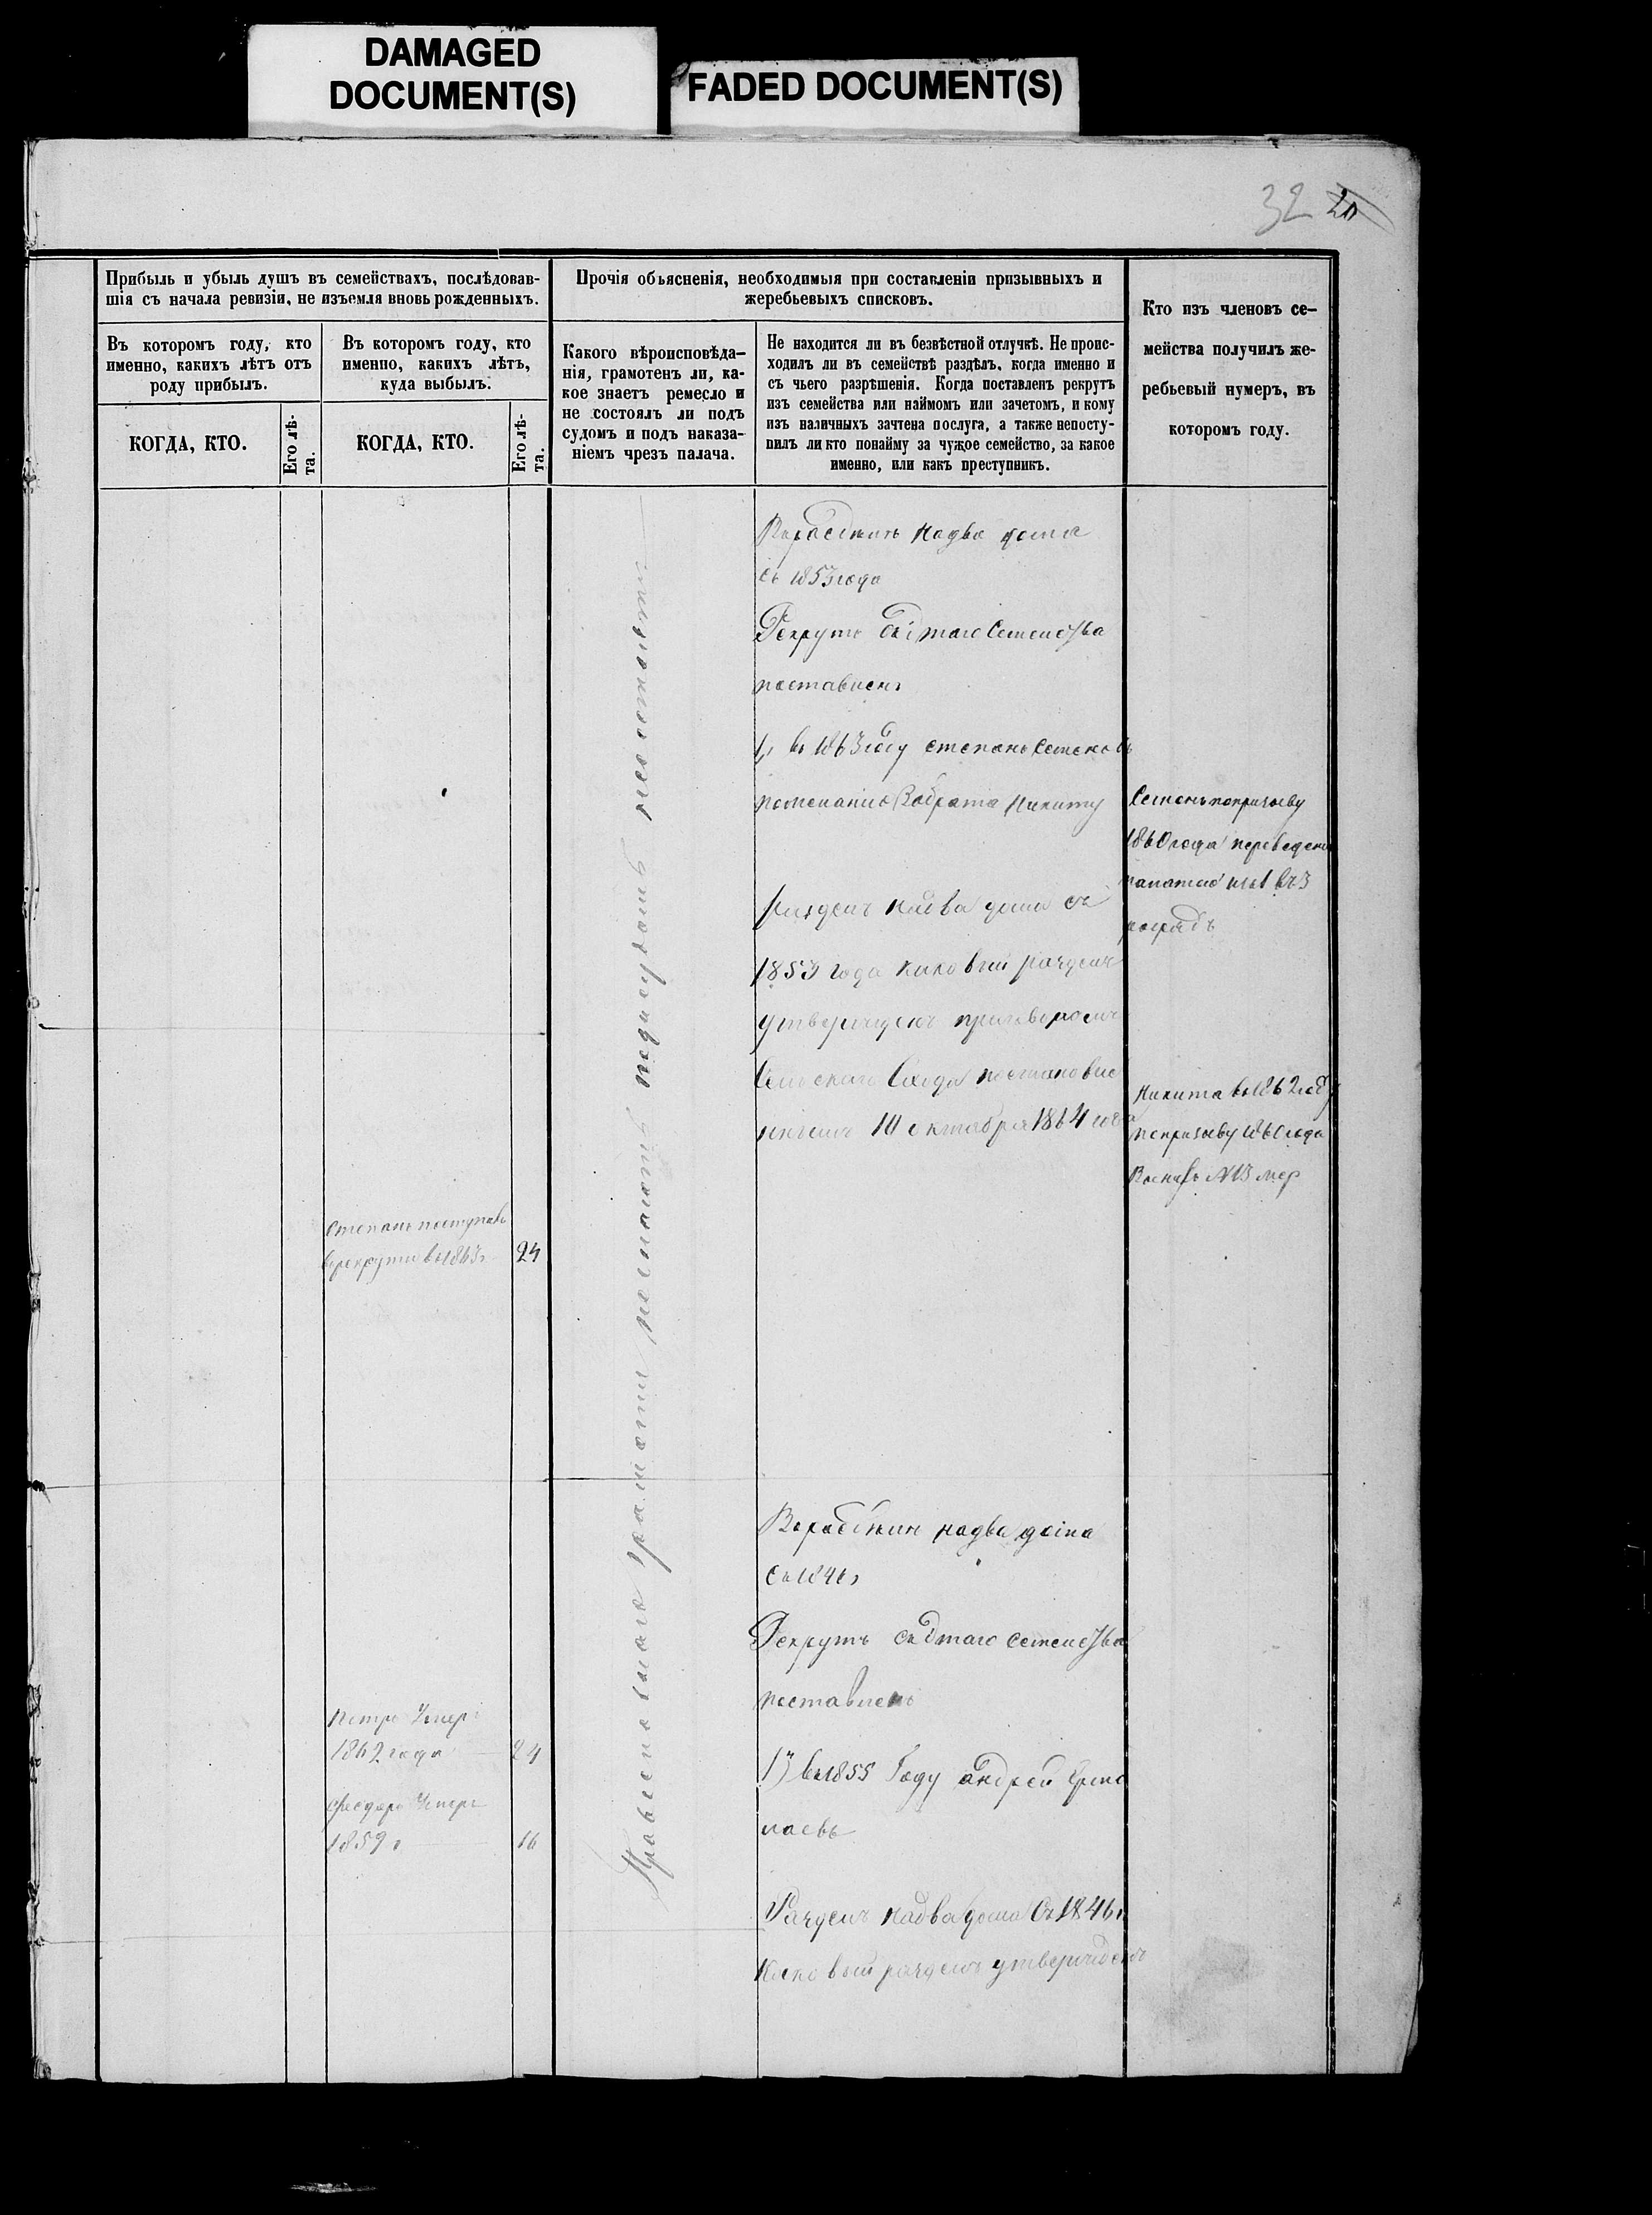 DAMAGED
DOCUMENT(S)
FADED DOCUMENT(S)
32 20
Прибыль и убыль душъ въ семействахъ, послѣдовав-
шія съ начала ревизіи, не изъемля вновь рожденныхъ.
Прочія объясненія, необходимыя при составленіи призывныхъ и
жеребьевыхъ списковъ.
Кто изъ членовъ се-
мейства получилъ же-
ребьевый нумеръ, въ
которомъ году.
Въ которомъ году, кто
именно, какихъ лѣтъ отъ
роду прибылъ.
Въ которомъ году, кто
именно, какихъ лѣтъ,
куда выбылъ.
Какого вѣроисповѣда-
нія, грамотенъ ли, ка-
кое знаетъ ремесло и
не состоялъ ли подъ
судомъ и подъ наказа-
ніемъ чрезъ палача.
Не находится ли въ безвѣстной отлучкѣ. Не проис-
ходилъ ли въ семействѣ раздѣлъ, когда именно и
съ чьего разрѣшенія. Когда поставленъ рекрутъ
изъ семейства или наймомъ или зачетомъ, и кому
изъ наличныхъ зачтена послуга, а также непосту-
пилъ ли кто понайму за чужое семейство, за какое
именно, или какъ преступникъ.
КОГДА, КТО.
Его лѣ-
та.
КОГДА, КТО.
Его лѣ-
та.
надва дома
съ 1853 года
Рекрутъ сэтаго семейства
поставленъ
1, въ 1863 году степанъ Семеновъ
пожеланию Забрата Никиту
Разделъ надва дома съ
1853 года каковый разделъ
утвержденъ приговоромъ
Сельскаго Схода постановле
ннымъ 10 октября 1864 года
Семенъ попризыву
1860 года переведенъ
в 3
розрядъ
Никита въ 1862 году
попризыву 1860 года
Степанъ поступилъ
врекруты в 1863 г 24
Православнаго грамоты незнаютъ подсудомъ несостояли
надва дома
съ 1846 г
Рекрутъ сэтаго семейства
поставленъ
1) в 1855 Году андрей Ермо
лаевъ
Петръ Умеръ
1862 года 24
Федоръ Умеръ
1859 г 16
Разделъ надва дома Съ 1846 г
Каковый разделъ утвержденъ